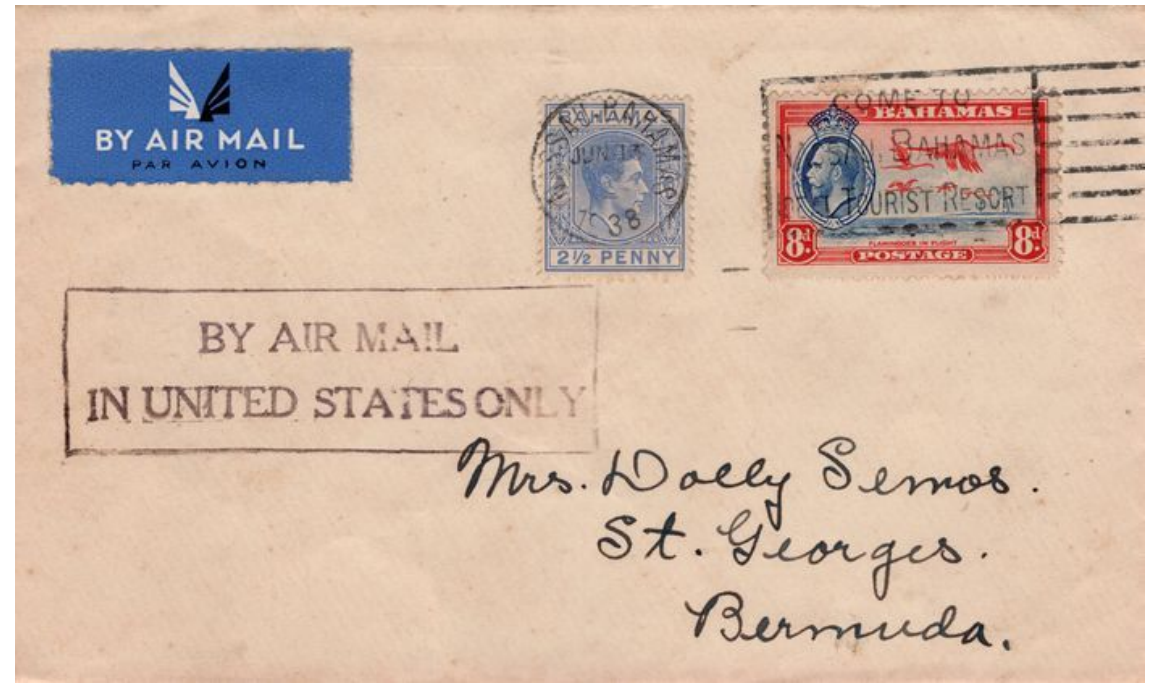 BY AIR MAIL
PAR AVION
BAHAMAS
NASSAU BAHAMAS
JUN 13
38
2½ PENNY
COME TO
NASSAU, BAHAMAS
TOURIST RESORT
BAHAMAS
8d
8d
FLAMINGOES IN FLIGHT
POSTAGE
BY AIR MAIL
IN UNITED STATES ONLY
Mrs. Dolly Semos.
St. Georges.
Bermuda.